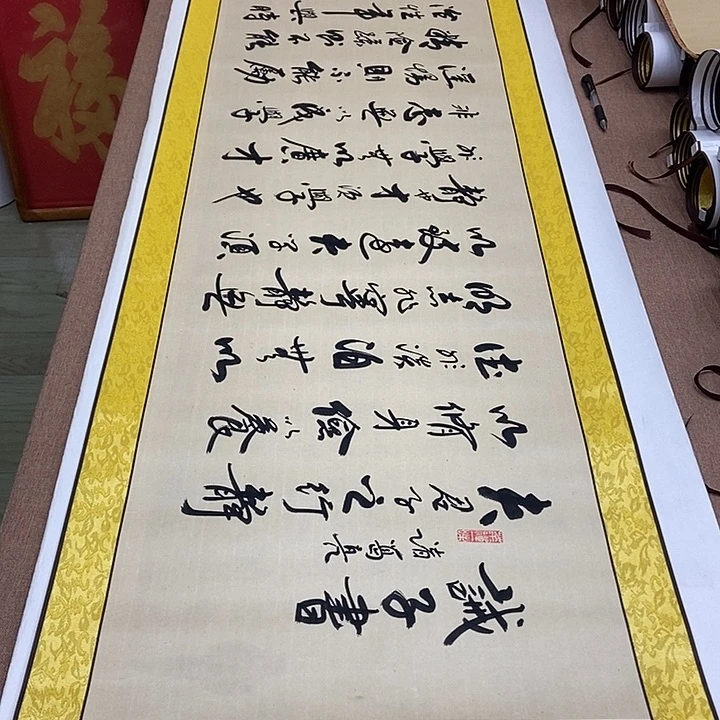 誡子書
諸葛亮
夫君子之行靜
以修身儉以養
德非淡泊無以
明志非寧靜無
以致遠夫學須
靜也才須學也
非學無以廣才
非志無以成學
淫慢則不能勵
精險躁則不能
治性年與時